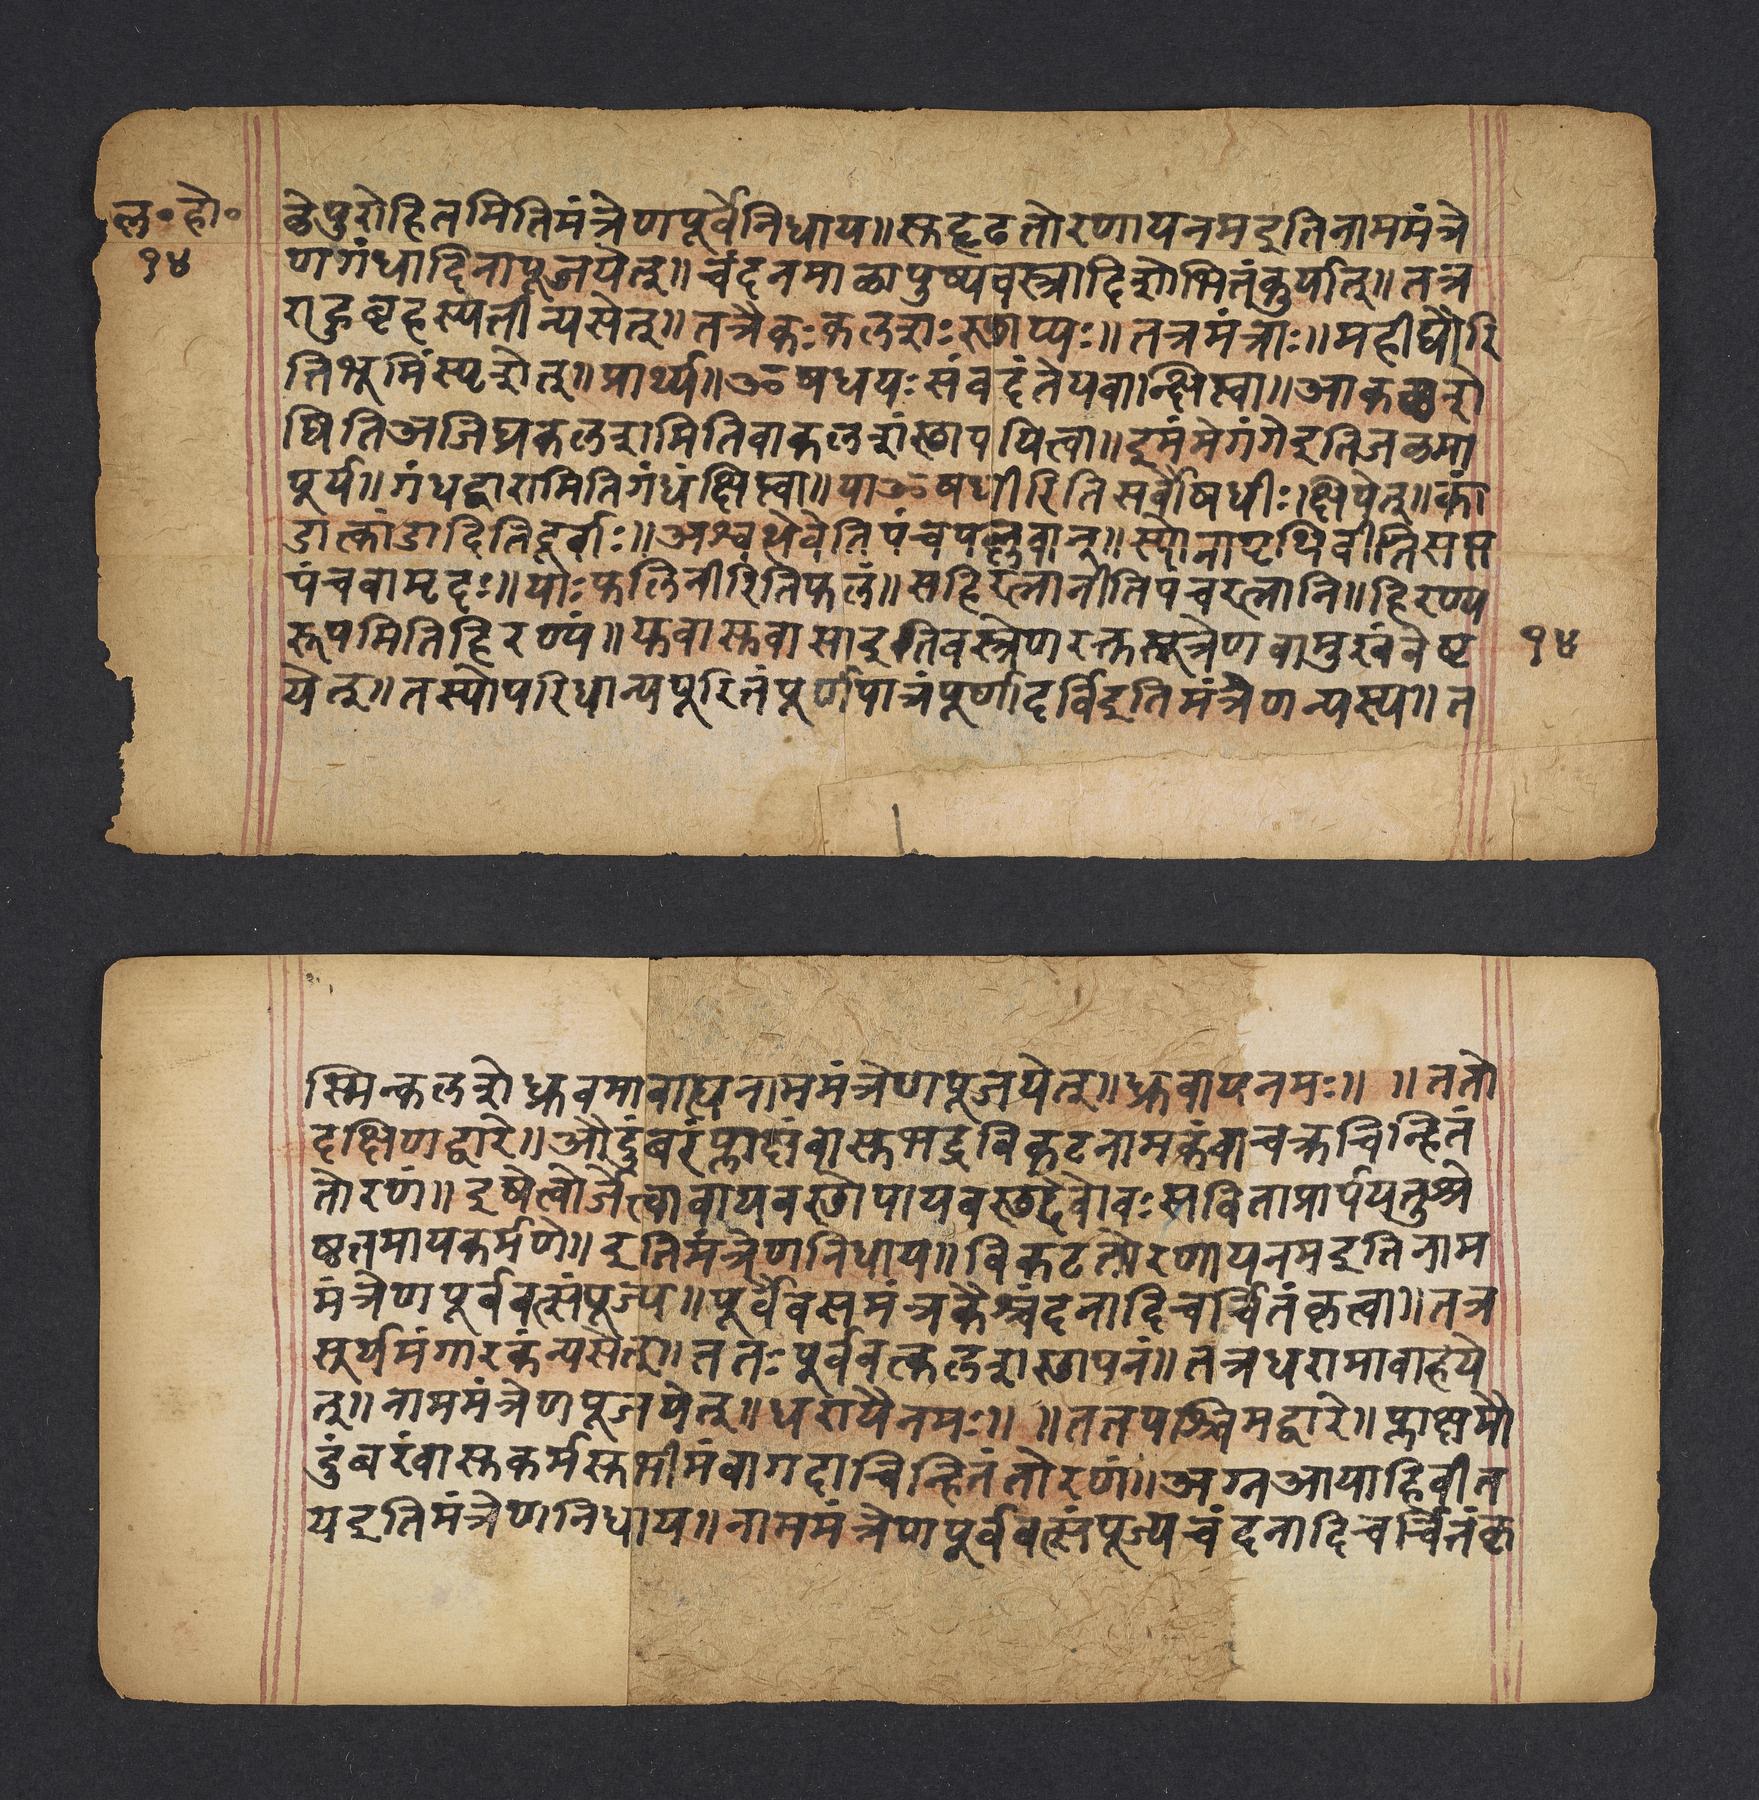 ल॰हो॰
१४
ळेपुरोहितमितिमंत्रेणपूर्वेनिधाय॥सुदृढतोरणायनमइतिनाममंत्रे
णगंधादिनापूजयेत्॥चंदनमाळापुष्पवस्त्रादिशोभितंकुर्यात्॥तत्र
राहुबृहस्पतीन्यसेत्॥तत्रैकःकलशःस्थाप्यः॥तत्रमंत्राः॥महीद्यौरि
तिभूमिंस्पृशेत्॥प्रार्थ्य॥ॐषधयःसंवदंतेयवान्क्षिप्त्वा॥आकळशे
ष्वितिअजिघ्रकलशमितिवाकलशंस्थापयित्वा॥इमंमेगंगेइतिजळमा
पुर्य॥गंधद्वारामितिगंधंक्षिप्त्वा॥याॐषधीरितिसर्वौषधीःक्षिपेत्॥कां
डात्कांडादितिदूर्वाः॥अश्वथेवेतिपंचपल्लवान्॥स्योनापृथिवीतिसप्त
पंचवामृदः॥याःफलिनीरितिफलं॥सहिरत्नानीतिपंचरत्नानि॥हिरण्य
रूपमितिहिरण्यं॥युवासुवासाइतिवस्त्रेणरक्तसूत्रेणवामुखंवेष्ट
१४
येत्॥तस्योपरिधान्यपूरितंपूर्णपात्रंपूर्णादर्विइतिमंत्रेणन्यस्य॥त
स्मिन्कलशेध्रुवमावाह्यनाममंत्रेणपूजयेत्॥ध्रुवायनमः॥ ॥ततो
दक्षिणद्वारे॥औदुंबरंप्लाक्षंवासुभद्रविकटनामकंवाचक्रचिन्हितं
तोरणं॥इषेत्वोर्जेत्वावायवस्थोपायवस्थदेवोवःसविताप्रार्पयतुश्रे
ष्ठतमायकर्मणे॥इतिमंत्रेणनिधाय॥विकटतोरणायनमइतिनाम
मंत्रेणपूर्ववत्संपूज्य॥पूर्वेवसमंत्रकैश्चंदनादिचर्चितंकृत्वा॥तत्र
सूर्यमंगारकंन्यसेत्॥ततःपूर्ववत्कलशस्थापनं॥तत्रधरामावाहये
त्॥नाममंत्रेणपूजयेत्॥धरायैनमः॥ ॥ततपश्चिमद्वारे॥प्लाक्षमौ
दुंबरंवासुकर्मसुभीमंवागदाचिन्हितंतोरणं॥अग्नआयाहिवीत
यइतिमंत्रेणनिधाय॥नाममंत्रेणपूर्ववत्संपूज्यचंदनादिचर्चितंकृ